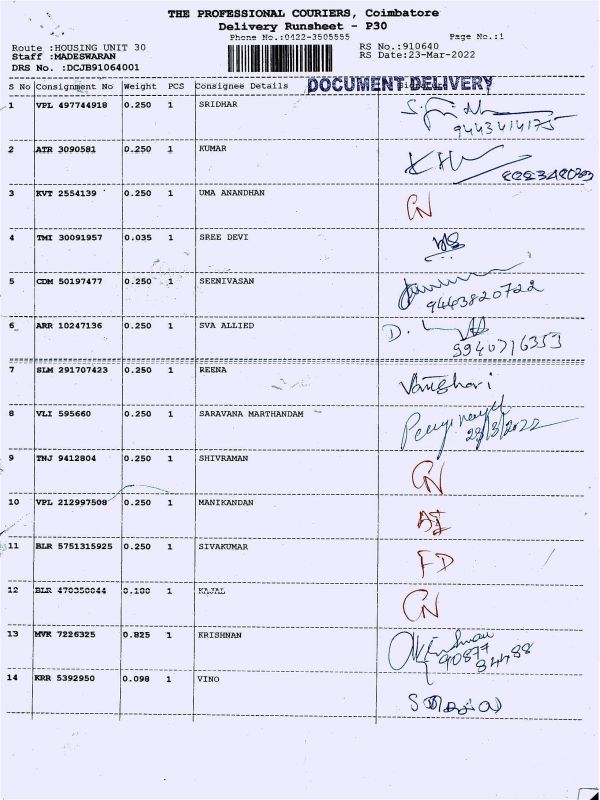 THE PROFESSIONAL COURIERS, Coimbatore
Delivery Runsheet - P30
Phone No.:0422-3505555
Page No.:1
Route :HOUSING UNIT 30
RS No.:910640
Staff :MADESWARAN
RS Date:23-Mar-2022
DRS No. :DCJB91064001
DOCUMENT DELIVERY
S No Consignment No Weight PCS Consignee Details
1 VPL 497744918 0.250 1 SRIDHAR
9443414175
2 ATR 3090581 0.250 1 KUMAR
3 KVT 2554139 0.250 1 UMA ANANDHAN GN
4 TMI 30091957 0.035 1 SREE DEVI
5 CDM 50197477 0.250 1 SEENIVASAN
9443820722
6 ARR 10247136 0.250 1 SVA ALLIED
9940716353
7 SLM 291707423 0.250 1 REENA
8 VLI 595660 0.250 1 SARAVANA MARTHANDAM
23/3/2022
9 TNJ 9412804 0.250 1 SHIVRAMAN GN
10 VPL 212997508 0.250 1 MANIKANDAN
11 BLR 5751315925 0.250 1 SIVAKUMAR FD
12 BLR 470350044 0.100 1 KAJAL GN
13 MVK 7226325 0.825 1 KRISHNAN
90877
94488
14 KRR 5392950 0.098 1 VINO